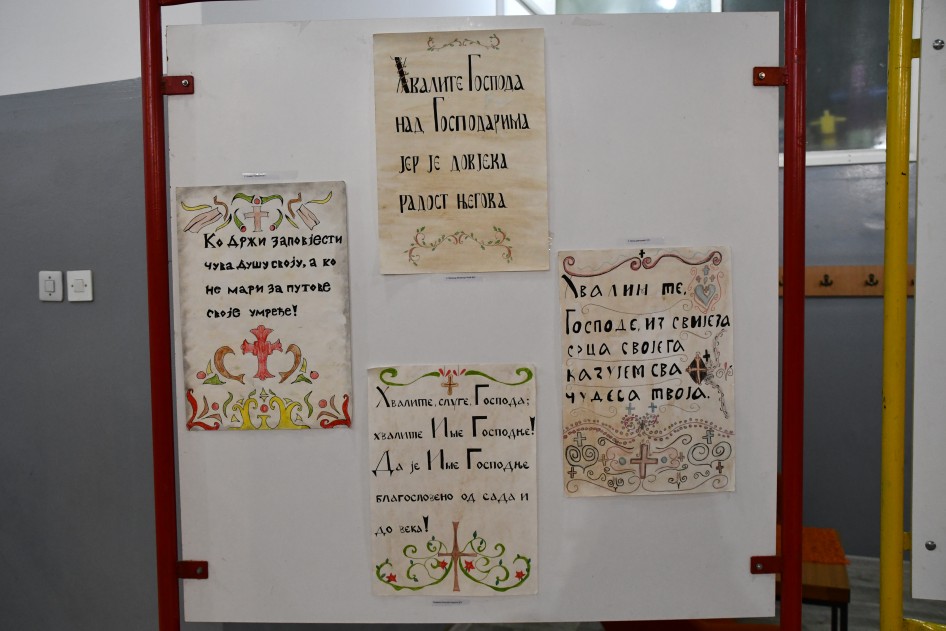 Хвалите Господа
над Господарима
јер је довјека
радост његова
Ко држи заповјести
чува душу своју, а ко
не мари за путове
своје умреће!
Хвалим те,
Господе, из свијега
срца својега
казујем сва
чудеса твоја.
Хвалите, слуге, Господа;
хвалите Име Господње!
Да је Име Господње
благословено од сада и
до века!